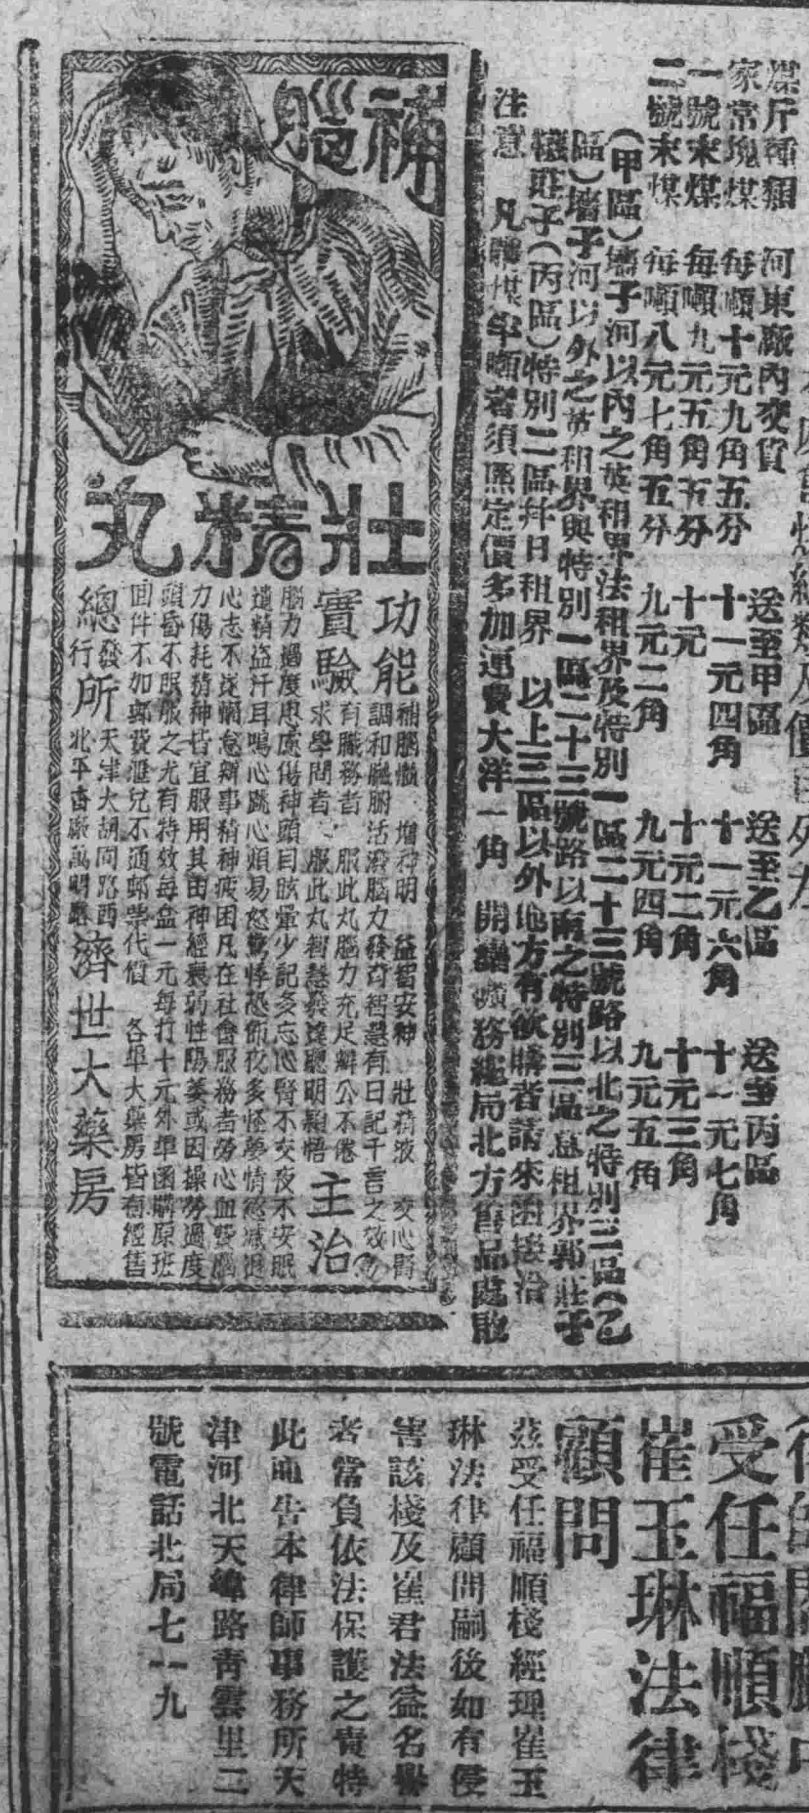 煤斤種類　河東廠內交貨　送至甲區　送至乙區　送至丙區
家常塊煤　每噸十元九角五分　十一元四角　十一元六角　十一元七角
一號末煤　每噸九元五角五分　十元　十元二角　十元三角
二號末煤　每噸八元七角五分　九元二角　九元四角　九元五角
（甲區）墻子河以內之英租界法租界及特別一區二十三號路以北之特別三區（乙
區）墻子河以外之英租界與特別一區二十三號路以南之特別三區意租界郭莊子
莊子（丙區）特別二區幷日租界　以上三區以外地方有欲購者請來函接洽
注意　凡購煤半噸者須照定價多加運費大洋一角　開灤礦務總局北方售品處啟
補腦
壯精丸
功能
補腦髓　增神明　益智安神　壯精液　交心腎
調和臟腑活潑腦力發育智慧有日記千言之效
實驗
有職務者　服此丸腦力充足辦公不倦
求學問者　服此丸智慧發達聰明穎悟
主治
腦力過度思慮傷神頭目眩暈少記多忘心腎不交夜不安眠
遺精盜汗耳鳴心跳心煩易怒驚悸恐怖夜多怪夢情慾減退
心志不遂懶怠辦事精神疲困凡在社會服務者勞心血費腦
力傷耗精神皆宜服用其由神經衰弱性陽萎或因操勞過度
頭昏不眠服之尤有特效每盒一元每打十元外埠函購原班
回件不加郵費滙兌不通郵票代價　各埠大藥房皆有經售
總發行所
天津大胡同路西
北平香廠萬明路
濟世大藥房
受任福順棧
崔玉琳法律
顧問
茲受任福順棧經理崔玉
琳法律顧問嗣後如有侵
害該棧及崔君法益名譽
者當負依法保護之責特
此通告本律師事務所天
津河北天緯路青雲里二
號電話北局七一九